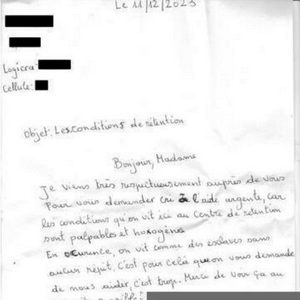 Le 11/12/2023
Logicra:
Cellule:
Objet: Les conditions de rétention
Bonjour, Madame
Je viens très respectueusement auprès de vous
Pour vous demander cri à l'aide urgente, car
les conditions qu'on vit ici au centre de rétention
sont palpables et hoxogène
En ocurence, on vit comme des esclaves sans
aucun répit. C'est pour cela que on vous demande
de nous aider c'est trop. Merci de voir ça au